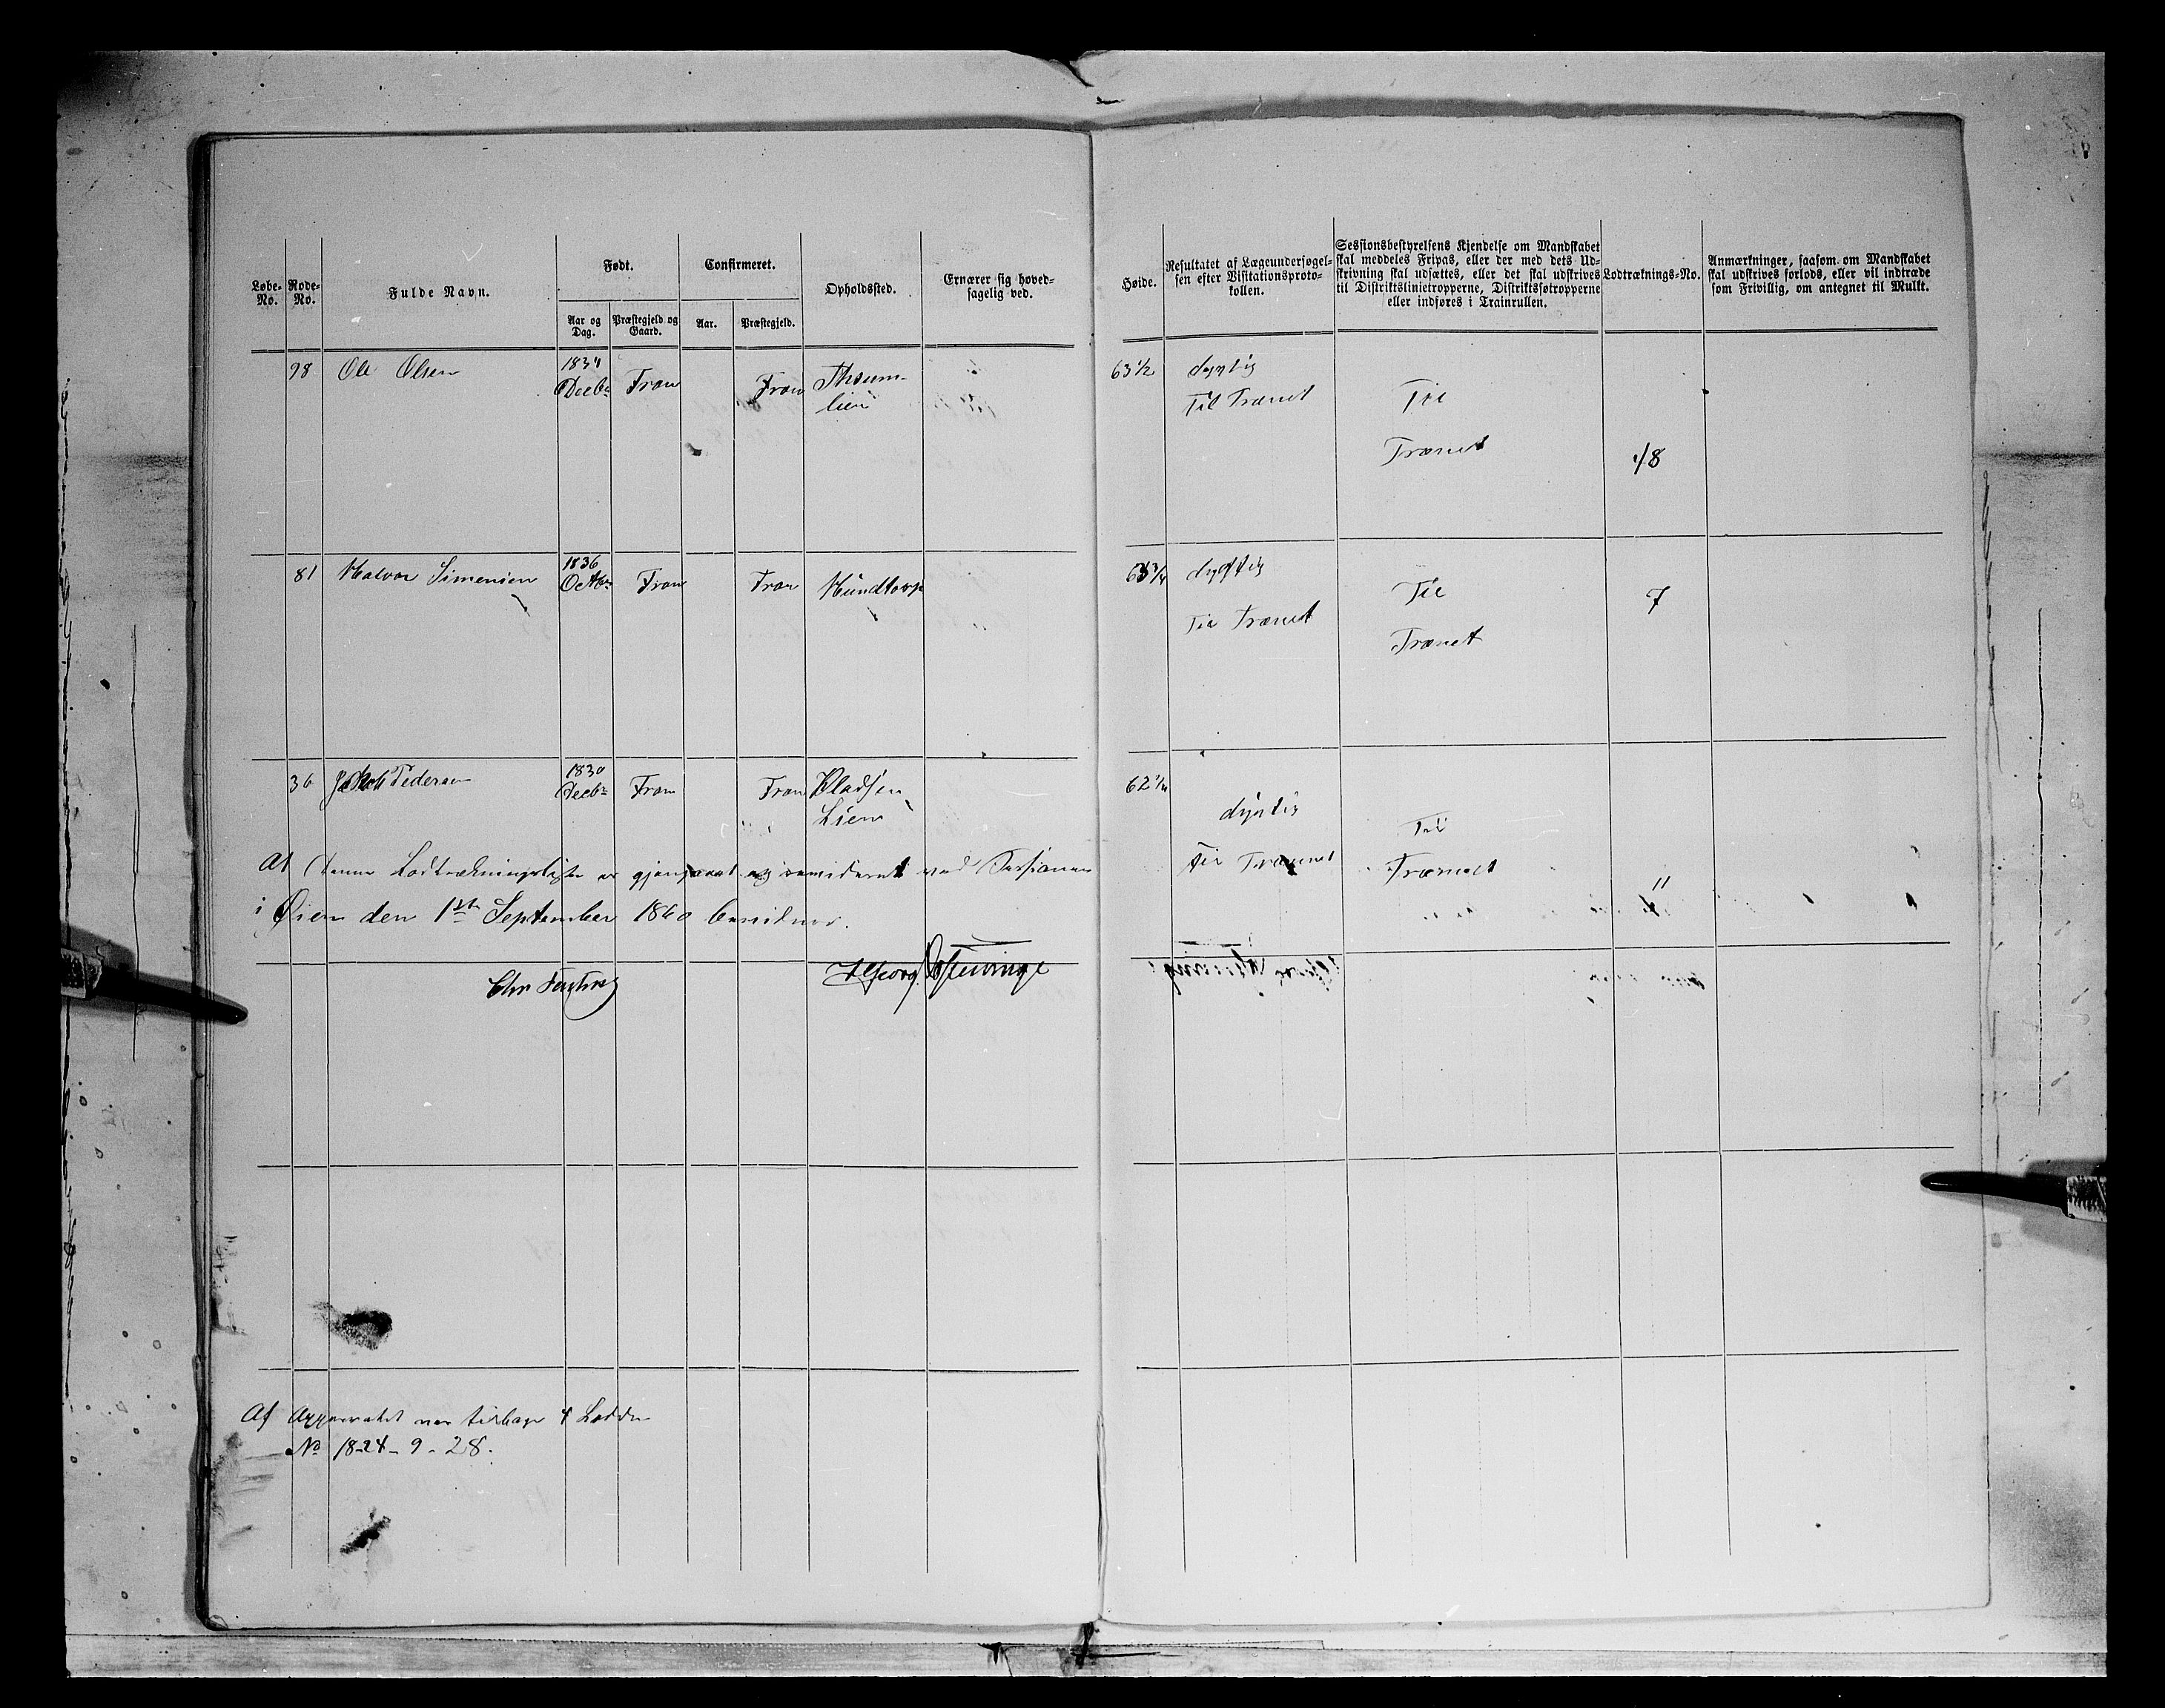 Løbe-No.
Rode-No.
Fulde Navn.
Født.
Aar og Dag.
Præstegjeld og Gaard.
Confirmeret.
Aar.
Præstegjeld.
Opholdssted.
Ernærer sig hoved-
sagelig ved.
Høide.
Resultatet af Lægeundersøgel-
sen efter Visitationsproto-
kollen.
Sessionsbestyrelsens Kjendelse om Mandskabet
skal meddeles Fripas, eller der med dets Ud-
skrivning skal udsættes, eller det skal udskrives
til Distriktslinietropperne, Distriktsfotropperne
eller indføres i Trainrullen.
Lodtræknings-No.
Anmærkninger, saasom om Mandskabet
skal udskrives forlods, eller vil indtræde
som Frivillig, om antegnet til Mulkt.
98 Ole Olsen 1834 Decbr Fron Fron 63 1/2 dygtig
Til Trænet Til
Trænet 18
81 Halvor Simensen 1836 Octbr Fron Fron Hundtorp dygtig
Til Trænet Til 7
Trænet
36 Jakob Pedersen 1830 Decbr Fron Fron Pladsen 62 1/4
Lien dygtig Til
Til Trænet Trænet
11
At denne Lodtrækningsliste er gjengaaet og revideret ved Sessionen
i Øien den 1ste September 1860 bevidnes.
Af Apparatet var tilbage 4 Lodder
No 18-24-9-28.